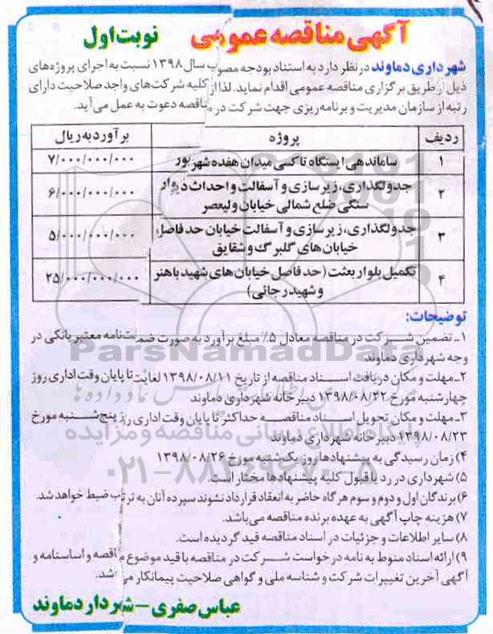 آگهی مناقصه عمومی نوبت اول
شهرداری دماوند در نظر دارد به استناد بودجه مصوب سال ۱۳۹۸ نسبت به اجرای پروژه‌های
ذیل از طریق برگزاری مناقصه عمومی اقدام نماید. لذا از کلیه شرکت‌های واجد صلاحیت دارای
رتبه از سازمان مدیریت و برنامه‌ریزی جهت شرکت در مناقصه دعوت به عمل می‌آید.
ردیف پروژه برآورد به ریال
۱ ساماندهی ایستگاه تاکسی میدان هفده شهریور ۷/۰۰۰/۰۰۰/۰۰۰
۲ جدولگذاری، زیرسازی و آسفالت و احداث دیوار ۶/۰۰۰/۰۰۰/۰۰۰
سنگی ضلع شمالی خیابان ولیعصر
۳ جدولگذاری، زیرسازی و آسفالت خیابان حد فاصل ۵/۰۰۰/۰۰۰/۰۰۰
خیابان‌های گلبرگ و شقایق
۴ تکمیل بلوار بعثت (حد فاصل خیابان‌های شهید باهنر ۲۵/۰۰۰/۰۰۰/۰۰۰
و شهید رجائی)
توضیحات:
۱ـ تضمین شرکت در مناقصه معادل ۵٪ مبلغ برآورد به صورت ضمانت‌نامه معتبر بانکی در
وجه شهرداری دماوند
۲ـ مهلت و مکان دریافت اسناد مناقصه از تاریخ ۱۳۹۸/۰۸/۱۱ لغایت تا پایان وقت اداری روز
چهارشنبه مورخ ۱۳۹۸/۰۸/۲۲ دبیرخانه شهرداری دماوند
۳ـ مهلت و مکان تحویل اسناد مناقصه حداکثر تا پایان وقت اداری روز پنج‌شنبه مورخ
۱۳۹۸/۰۸/۲۳ دبیرخانه شهرداری دماوند
۴) زمان رسیدگی به پیشنهادها روز یک‌شنبه مورخ ۱۳۹۸/۰۸/۲۶
۵) شهرداری در رد یا قبول کلیه پیشنهادها مختار است.
۶) برندگان اول و دوم و سوم هرگاه حاضر به انعقاد قرارداد نشوند سپرده آنان به ترتیب ضبط خواهد شد.
۷) هزینه چاپ آگهی به عهده برنده مناقصه می‌باشد.
۸) سایر اطلاعات و جزئیات در اسناد مناقصه قید گردیده است.
۹) ارائه اسناد منوط به نامه درخواست شرکت در مناقصه با قید موضوع مناقصه و اساسنامه و
آگهی آخرین تغییرات شرکت و شناسه ملی و گواهی صلاحیت پیمانکار می‌باشد.
عباس صفری - شهردار دماوند
ParsNamadData
پایگاه اطلاع رسانی مناقصه و مزایده